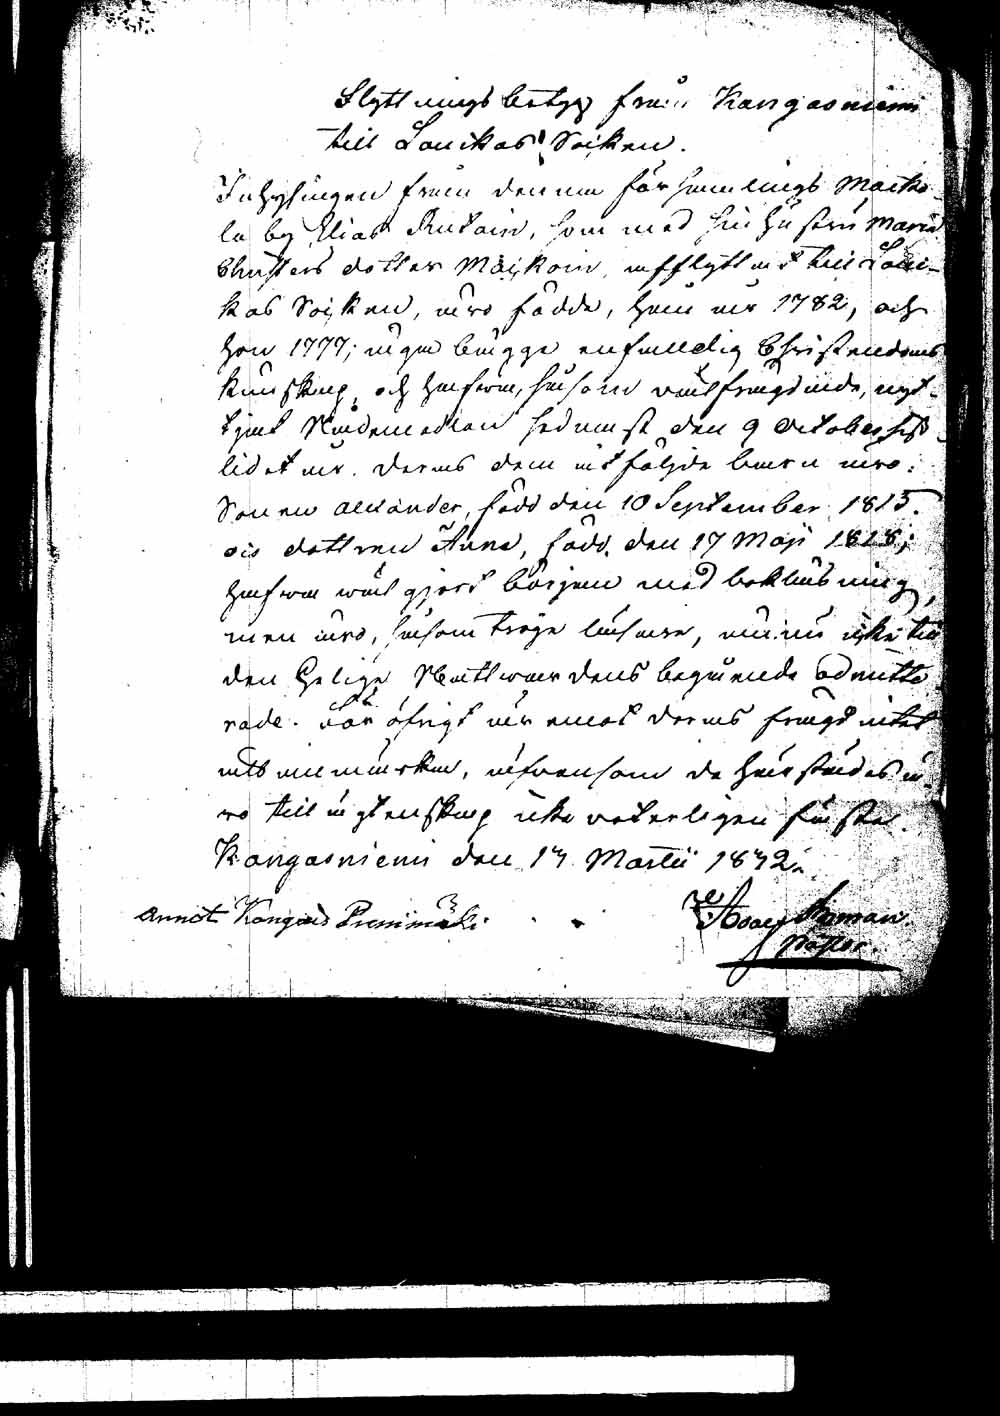 Flyttningsbetyg från Kangasniemi
till Laukas Socken.
Inhysingen från denna församlings Makko-
la by Elias Rutain, som med sin hustru Maria
Christers dotter Maikoin afflyttat till Lau-
kas Socken, äro födde, han år 1782, och
hon 1777; äga begge enfaldig Christendoms
kunskap, och hafwa, såsom wälfrägdade, nyt-
tjat Nådemedlen sednast den 9 October sist-
lidet år. Deras dem åtföljde barn äro:
Sonen Alexander, född den 10 September 1815.
och dottren Anna, född den 17 Maji 1818;
hafwa wäl gjort början med bokläsning,
men äro, såsom tröge läsare, ännu icke till
den Helige Nattwardens begående admitte-
rade. För öfrigt är emot deras frägd intet
att anmärka, äfwensom de härstädes ä-
ro till ägtenskap icke weterligen fäste.
Kangasniemi den 17 Martii 1832.
Adolf Aman.
Pastor.